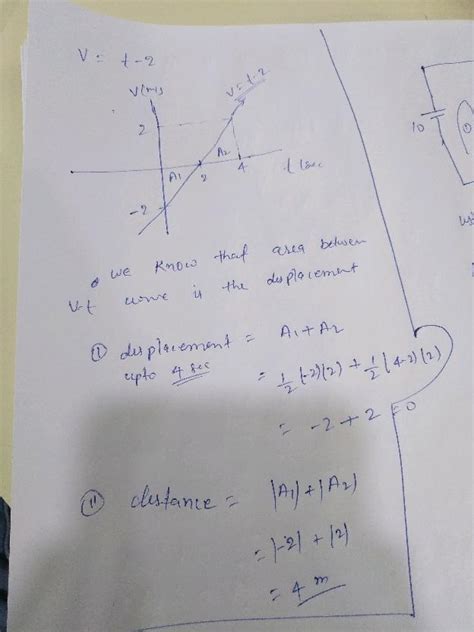 V = t-2
V(m/s)
V = t-2
2
A1
2
A2
4
t (sec
-2
we know that area between
V-t curve is the displacement
(i) displacement = A1 + A2
upto 4 sec
= 1/2 (-2)(2) + 1/2 (4-2)(2)
= -2 + 2 = 0
(ii) distance = |A1| + |A2|
= |-2| + |2|
= 4 m
10